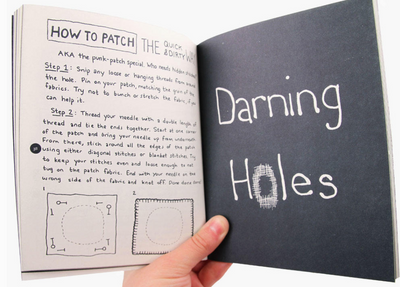 HOW TO PATCH THE QUICK & DIRTY WAY
AKA the punk-patch special. Who needs hidden stitches
Step 1: Snip any loose or hanging threads from around
the hole. Pin on your patch, matching the grain of the
fabrics. Try not to bunch or stretch the fabric, if you
can help it.
Step 2: Thread your needle with a double length of
thread and tie the ends together. Start at one corner
of the patch and bring your needle up from underneath.
From there, stitch around all the edges of the patch
using either diagonal stitches or blanket stitches. Try
to keep your stitches even and loose enough to not
tug on the patch fabric. End with your needle on the
wrong side of the fabric and knot off. Done
1
2
Darning
Holes